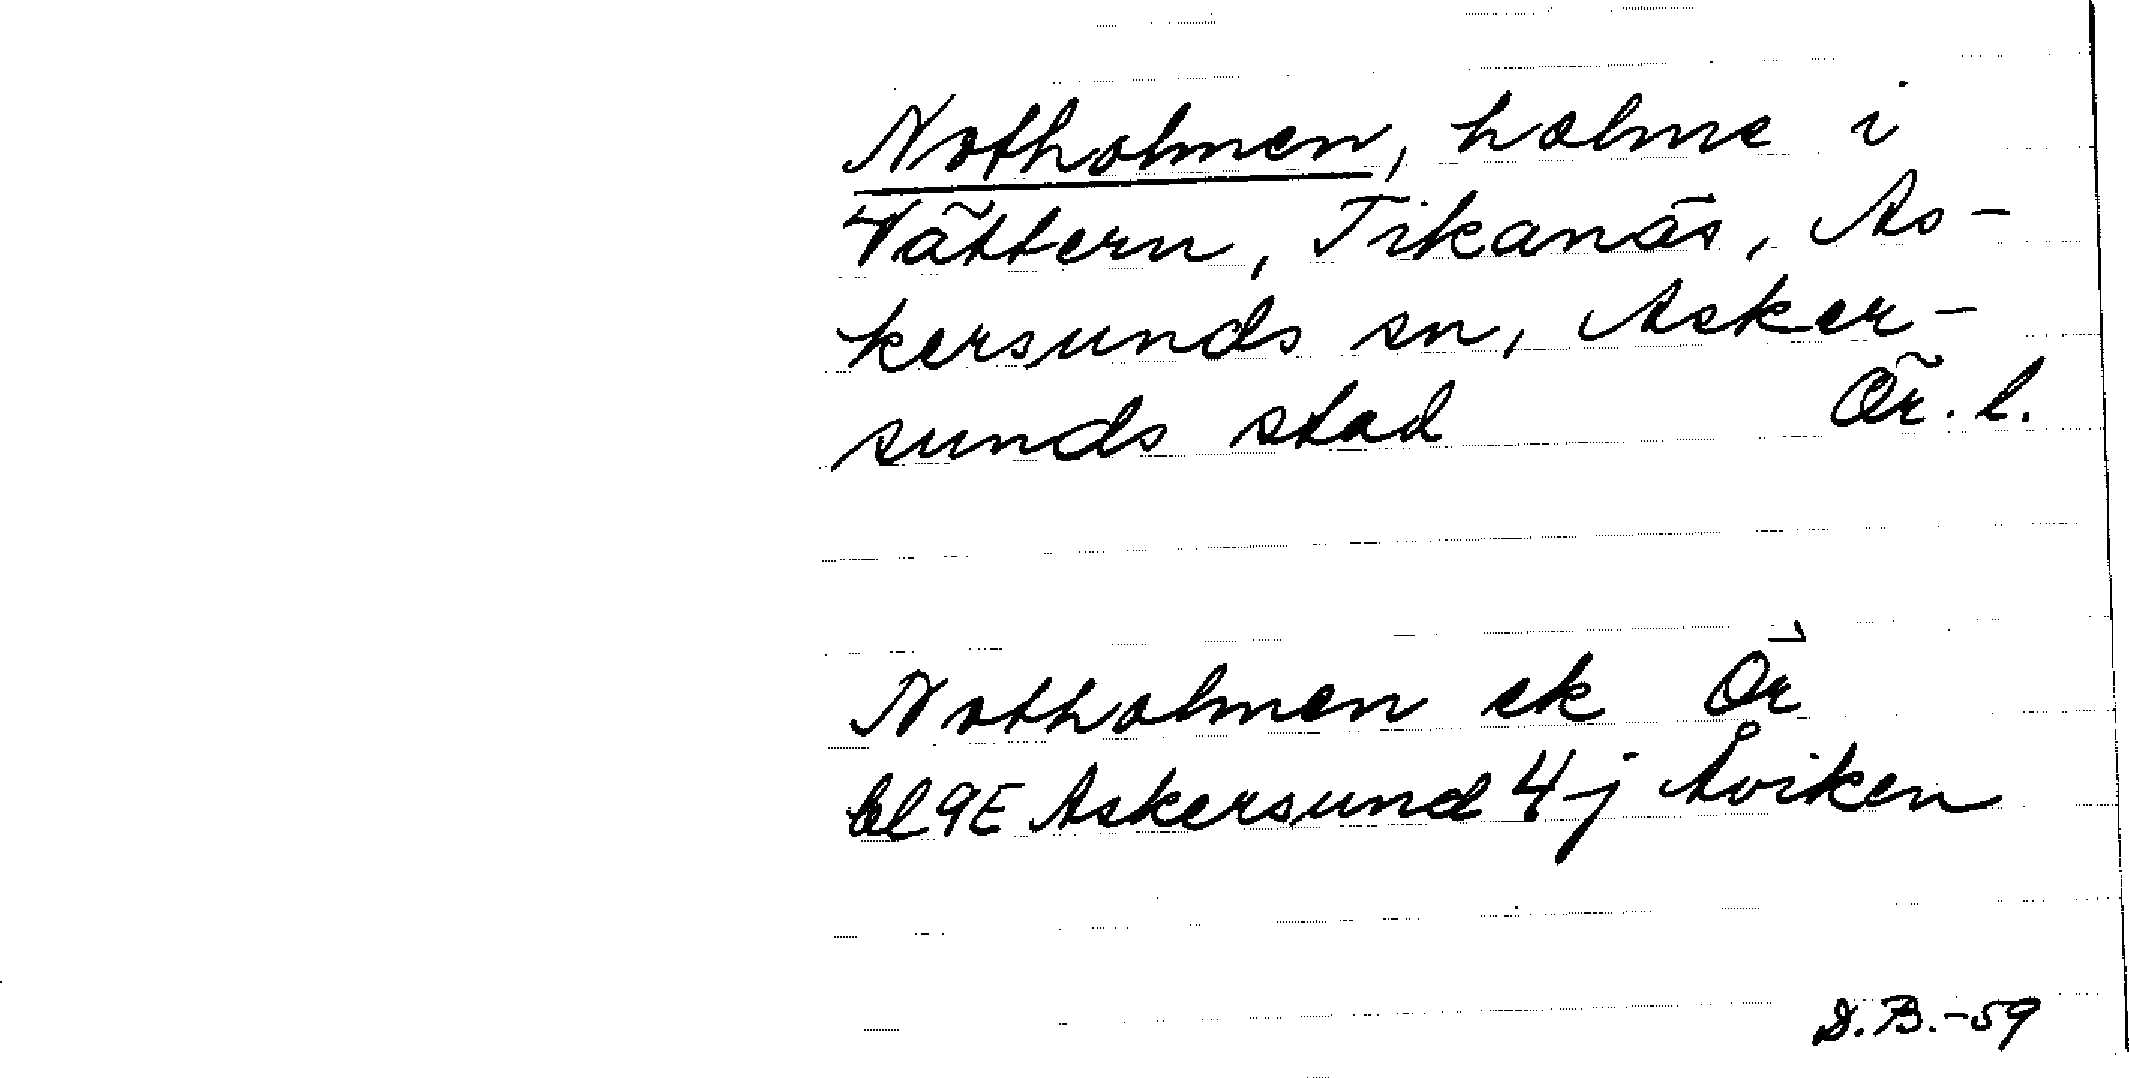 Notholmen, holme i
Vättern, Tikanäs, As-
kersunds sn, Asker-
sunds stad Ör. l.
Notholmen ek Ör
bl 9E Askersund 4 j Åviken
D.B.-59